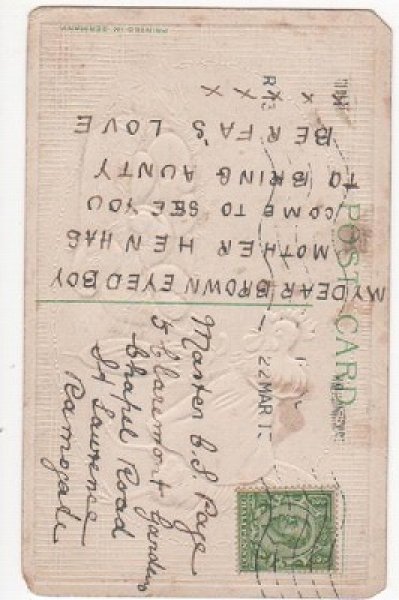 POST CARD
MY DEAR BROWN EYED BOY
MOTHER HEN HAS
COME TO SEE YOU
TO BRING AUNTY
BERFA'S LOVE
x x x x
Master Page
5 Claremont Gardens
Chapel Road
St Lawrence
Ramsgate
22 MAR
PRINTED IN GERMANY